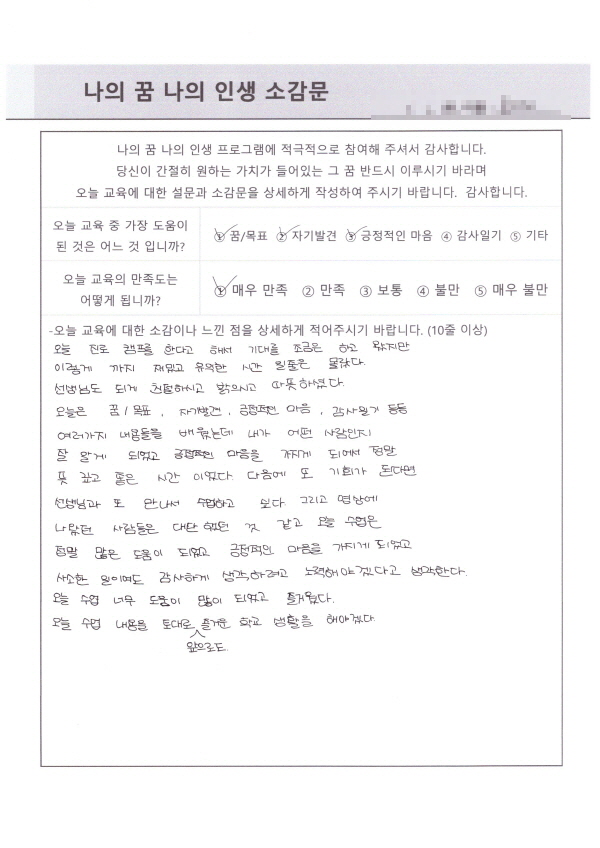 나의 꿈 나의 인생 소감문
나의 꿈 나의 인생 프로그램에 적극적으로 참여해 주셔서 감사합니다.
당신이 간절히 원하는 가치가 들어있는 그 꿈 반드시 이루시기 바라며
오늘 교육에 대한 설문과 소감문을 상세하게 작성하여 주시기 바랍니다. 감사합니다.
오늘 교육 중 가장 도움이
된 것은 어느 것 입니까?
① 꿈/목표 ② 자기발견 ③ 긍정적인 마음 ④ 감사일기 ⑤ 기타
오늘 교육의 만족도는
어떻게 됩니까?
① 매우 만족 ② 만족 ③ 보통 ④ 불만 ⑤ 매우 불만
-오늘 교육에 대한 소감이나 느낀 점을 상세하게 적어주시기 바랍니다. (10줄 이상)
오늘 진로 캠프를 한다고 해서 기대를 조금은 하고 왔지만
이렇게 까지 재밌고 유익한 시간 일줄은 몰랐다.
선생님도 되게 친절하시고 밝으시고 따뜻하셨다.
오늘은 꿈/목표, 자기발견, 긍정적인 마음, 감사일기 등등
여러가지 내용들을 배웠는데 내가 어떤 사람인지
잘 알게 되었고 긍정적인 마음을 가지게 되어서 정말
뜻 깊고 좋은 시간 이었다. 다음에 또 기회가 된다면
선생님과 또 만나서 수업하고 싶다. 그리고 영상에
나왔던 사람들은 대단했던 것 같고 오늘 수업은
정말 많은 도움이 되었고 긍정적인 마음을 가지게 되었고
사소한 일이여도 감사하게 생각하려고 노력해야겠다고 생각한다.
오늘 수업 너무 도움이 많이 되었고 즐거웠다.
오늘 수업 내용을 토대로 즐거운 학교 생활을 해야겠다.
앞으로도